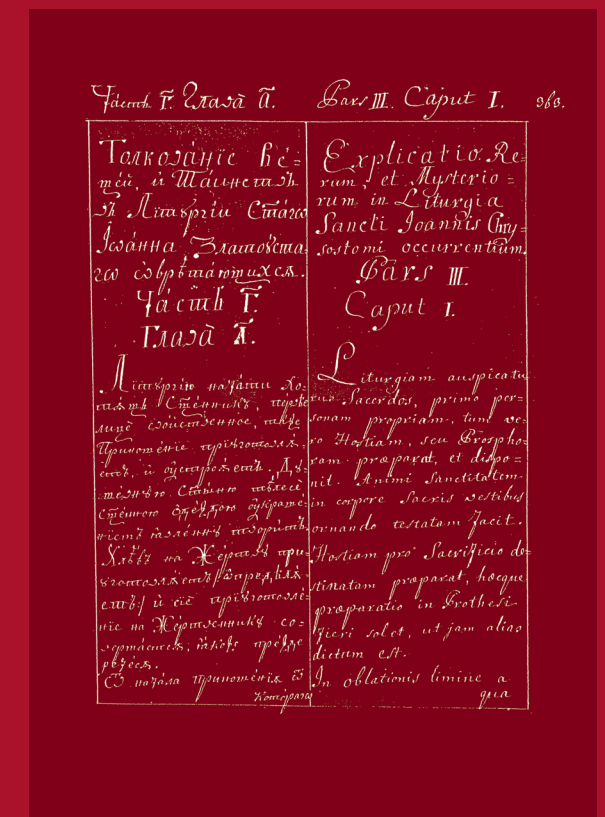 Часть Г. Глава А.
Pars III. Caput I. 363.
Толкованіе Ве=
щей, и Таинствъ
въ Літургіи Стагѡ
Іѡанна Златоуста=
гѡ ѡбрѣтающихсѧ.
Часть Г.
Глава А.
Літургію начати хо=
тѧщь Сщенникъ, первѣе
лице свойственное, таже
Приношеніе пріуготовлѧ=
етъ, и оустроѧетъ. Ду=
Хлѣбъ на Жертву при=
уготовлѧетъ
и сіе пріуготовле=
ніе на Жертвенникѣ со=
вершаетсѧ, ꙗкоже прежде
речесѧ.
Ѿ начала Приношеніѧ
Explicatio Re=
rum, et Mysterio=
rum in Liturgia
Sancti Joannis Chry=
sostomi occurrentium.
Pars III.
Caput I.
Liturgiam auspicatu=
rus Sacerdos, primo per=
sonam propriam, tum ve=
ro Hostiam, seu Prospho=
ram præparat, et dispo=
nit. Animi Sanctitatem
in corpore Sacris vestibus
ornando testatam facit.
Hostiam pro Sacrificio de=
stinatam præparat, hæcque
præparatio in Prothesi
fieri solet, ut jam alias
dictum est.
In oblationis limine a
qua